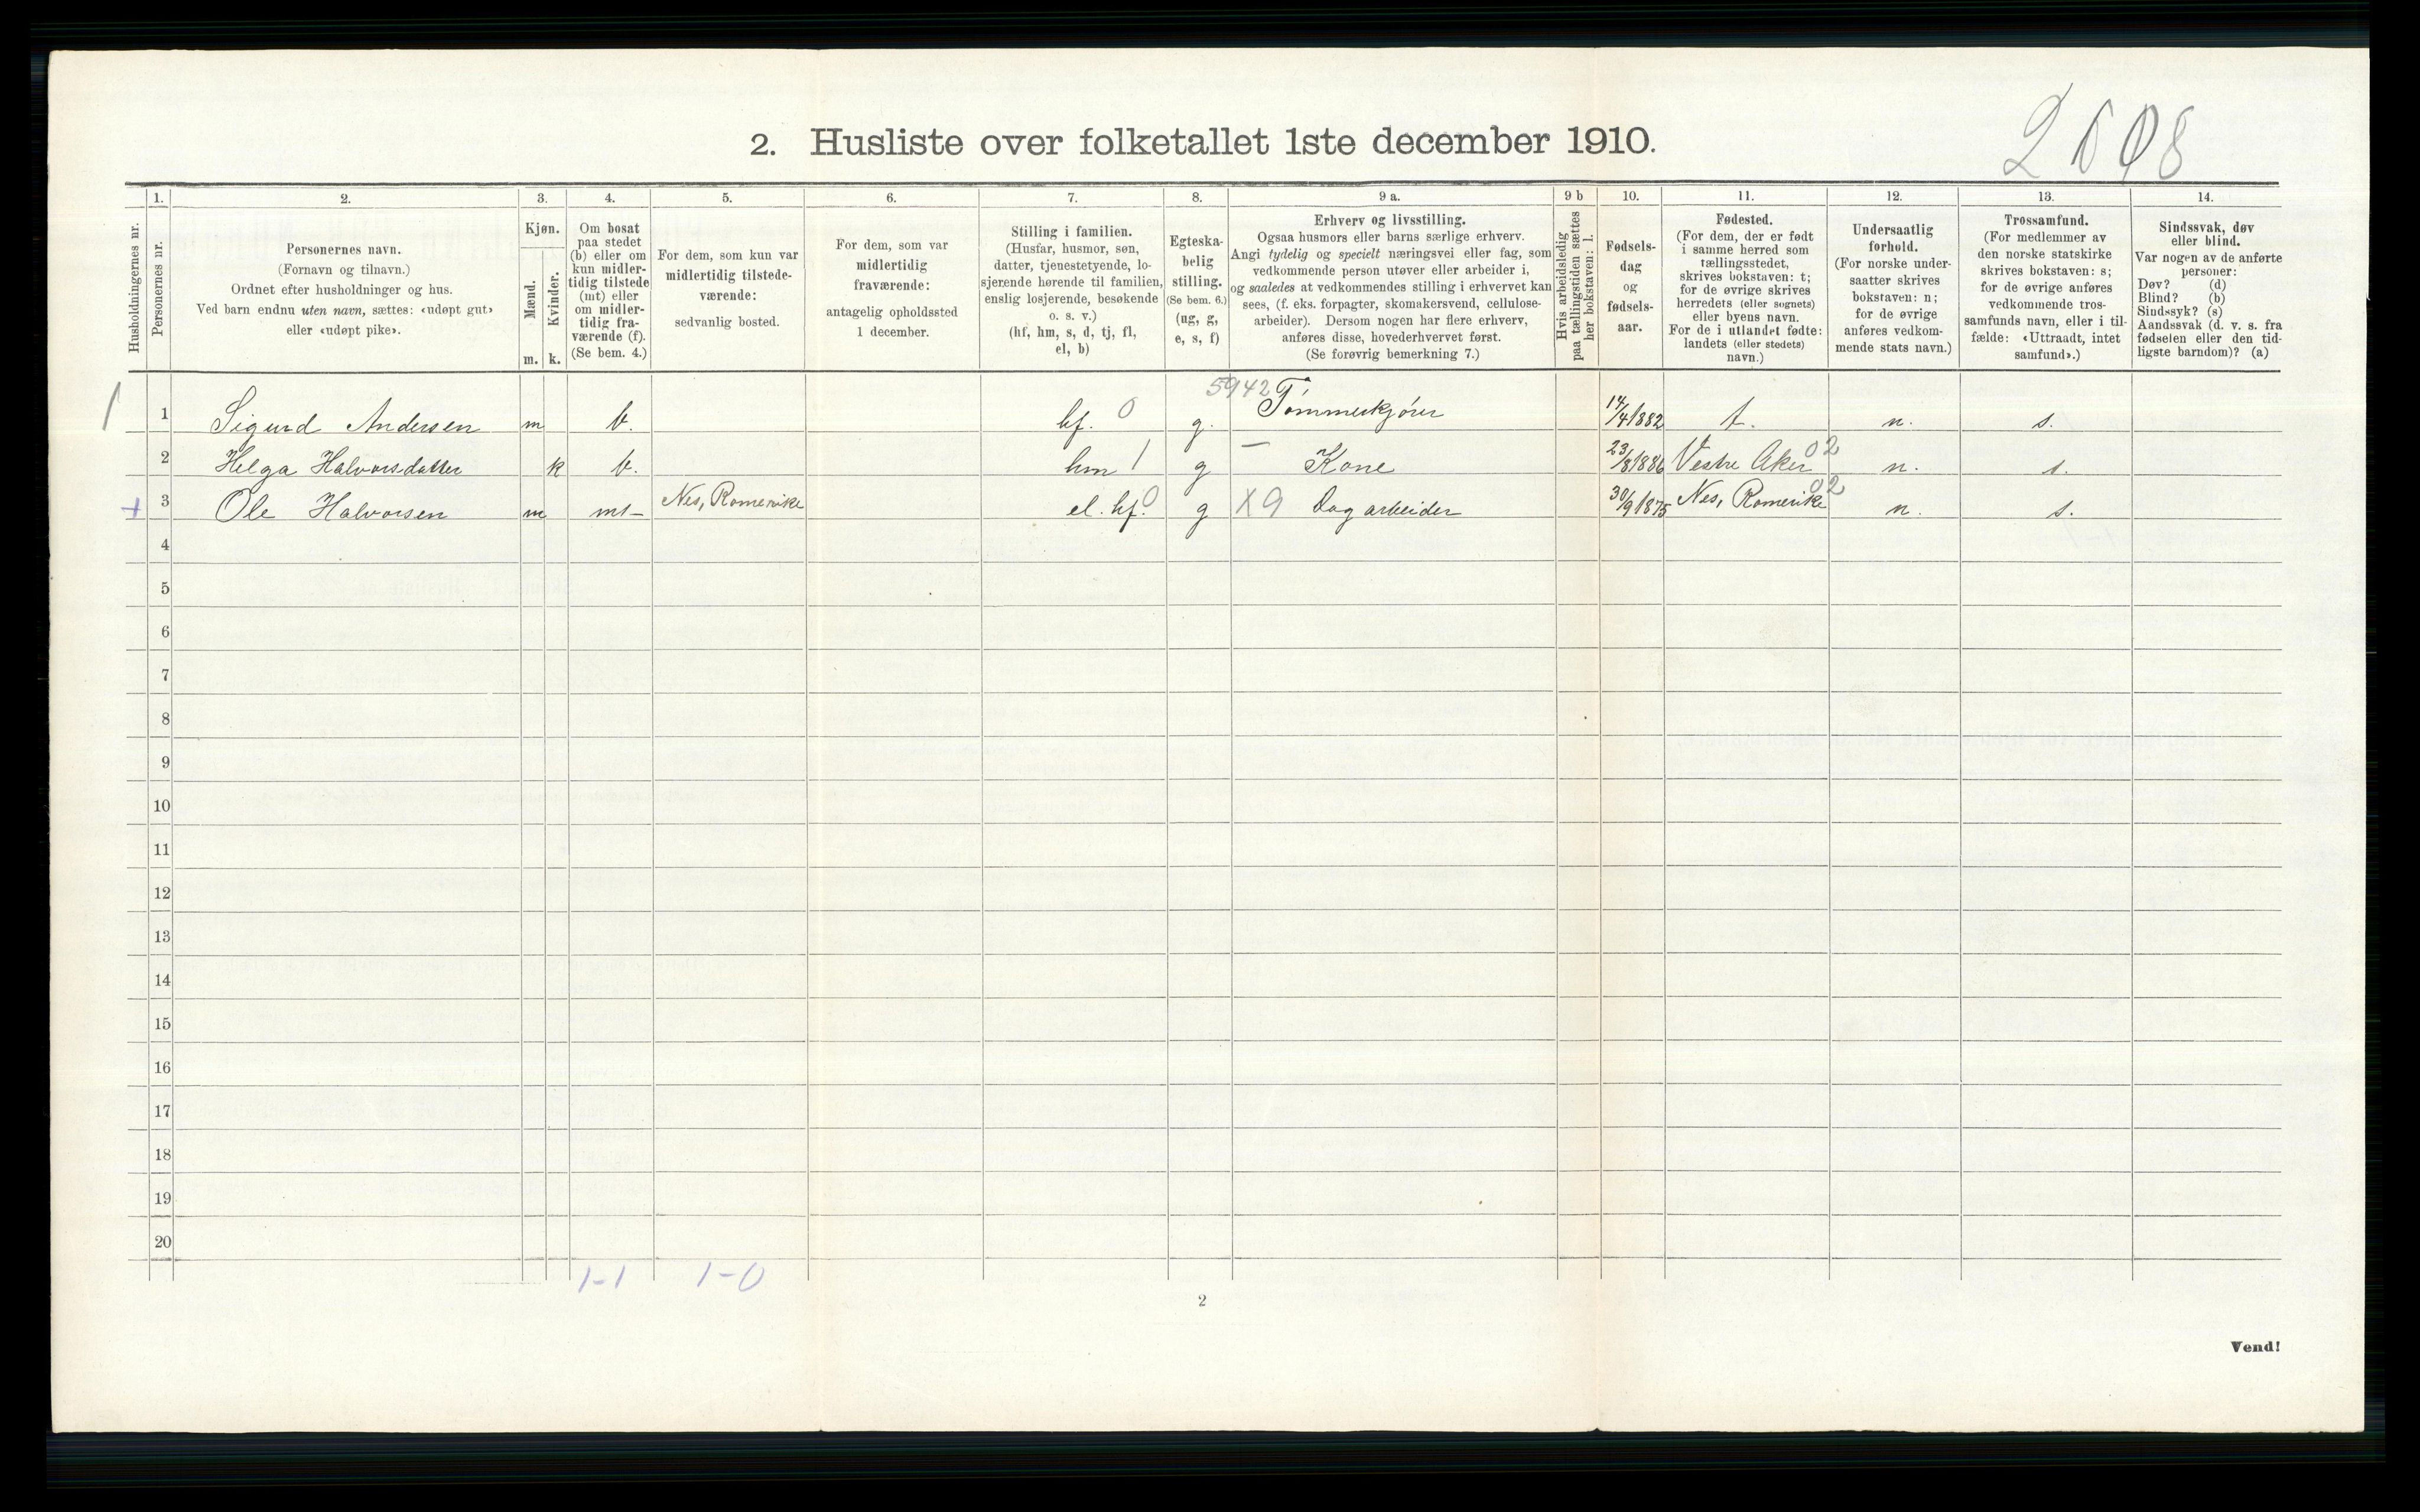 2608
2. Husliste over folketallet 1ste december 1910.
Husholdningernes nr.
1.
Personernes nr.
2.
Personernes navn.
(Fornavn og tilnavn.)
Ordnet efter husholdninger og hus.
Ved barn endnu uten navn, sættes: «udøpt gut»
eller «udøpt pike».
3.
Kjøn.
Mænd.
Kvinder.
m. k.
4.
Om bosat
paa stedet
(b) eller om
kun midler-
tidig tilstede
(mt) eller
om midler-
tidig fra-
værende (f).
(Se bem. 4.)
5.
For dem, som kun var
midlertidig tilstede-
værende:
sedvanlig bosted.
6.
For dem, som var
midlertidig
fraværende:
antagelig opholdssted
1 december.
7.
Stilling i familien.
(Husfar, husmor, søn,
datter, tjenestetyende, lo-
sjerende hørende til familien,
enslig losjerende, besøkende
o. s. v.)
(hf, hm, s, d, tj, fl,
el, b)
8.
Egteska-
belig
stilling.
(Se bem. 6.)
(ug, g,
e, s, f)
9 a.
Erhverv og livsstilling.
Ogsaa husmors eller barns særlige erhverv.
Angi tydelig og specielt næringsvei eller fag, som
vedkommende person utøver eller arbeider i,
og saaledes at vedkommendes stilling i erhvervet kan
sees, (f. eks. forpagter, skomakersvend, cellulose-
arbeider). Dersom nogen har flere erhverv,
anføres disse, hovederhvervet først.
(Se forøvrig bemerkning 7.)
9 b
Hvis arbeidsledig
paa tællingstiden sættes
her bokstaven: l.
10.
Fødsels-
dag
og
fødsels-
aar.
11.
Fødested.
(For dem, der er født
i samme herred som
tællingsstedet,
skrives bokstaven: t;
for de øvrige skrives
herredets (eller sognets)
eller byens navn.
For de i utlandet fødte:
landets (eller stedets)
navn.)
12.
Undersaatlig
forhold.
(For norske under-
saatter skrives
bokstaven: n;
for de øvrige
anføres vedkom-
mende stats navn.)
13.
Trossamfund.
(For medlemmer av
den norske statskirke
skrives bokstaven: s;
for de øvrige anføres
vedkommende tros-
samfunds navn, eller i til-
fælde: «Uttraadt, intet
samfund».)
14.
Sindssvak, døv
eller blind.
Var nogen av de anførte
personer:
Døv? (d)
Blind? (b)
Sindssyk? (s)
Aandssvak (d. v. s. fra
fødselen eller den tid-
ligste barndom)? (a)
1 1 Sigurd Andersen m b. hf. 0 g. 5942 Tømmerkjører 14/4 1882 t. n. s.
2 Helga Halvorsdatter k b. hm 1 g — Kone 23/8 1886 Vestre Aker 02 n. s.
+ 3 Ole Halvorsen m mt Nes, Romerike el. hf. 0 g X9 Dagarbeider 30/9 1875 Nes, Romerike 02 n. s.
4
5
6
7
8
9
10
11
12
13
14
15
16
17
18
19
20
1-1 1-0
2
Vend!